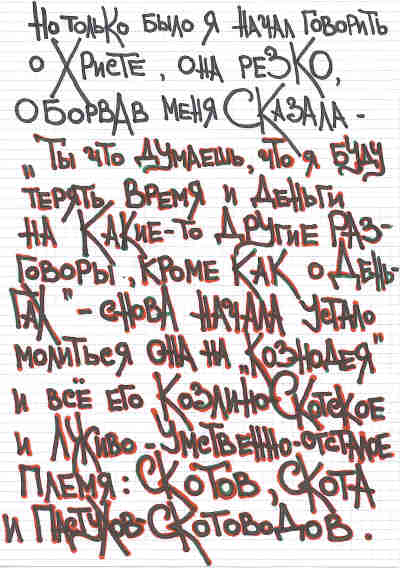 Но только было я начал говорить
о Христе, она резко,
оборвав меня сказала -
„Ты что думаешь, что я буду
терять время и деньги
на какие-то другие раз-
говоры, кроме как о день-
гах" - снова начала устало
молиться она на „Кознодея"
и всё его козлино-скотское
и лживо-умственно-отсталое
племя: скотов, скота
и пастухов-скотоводов.